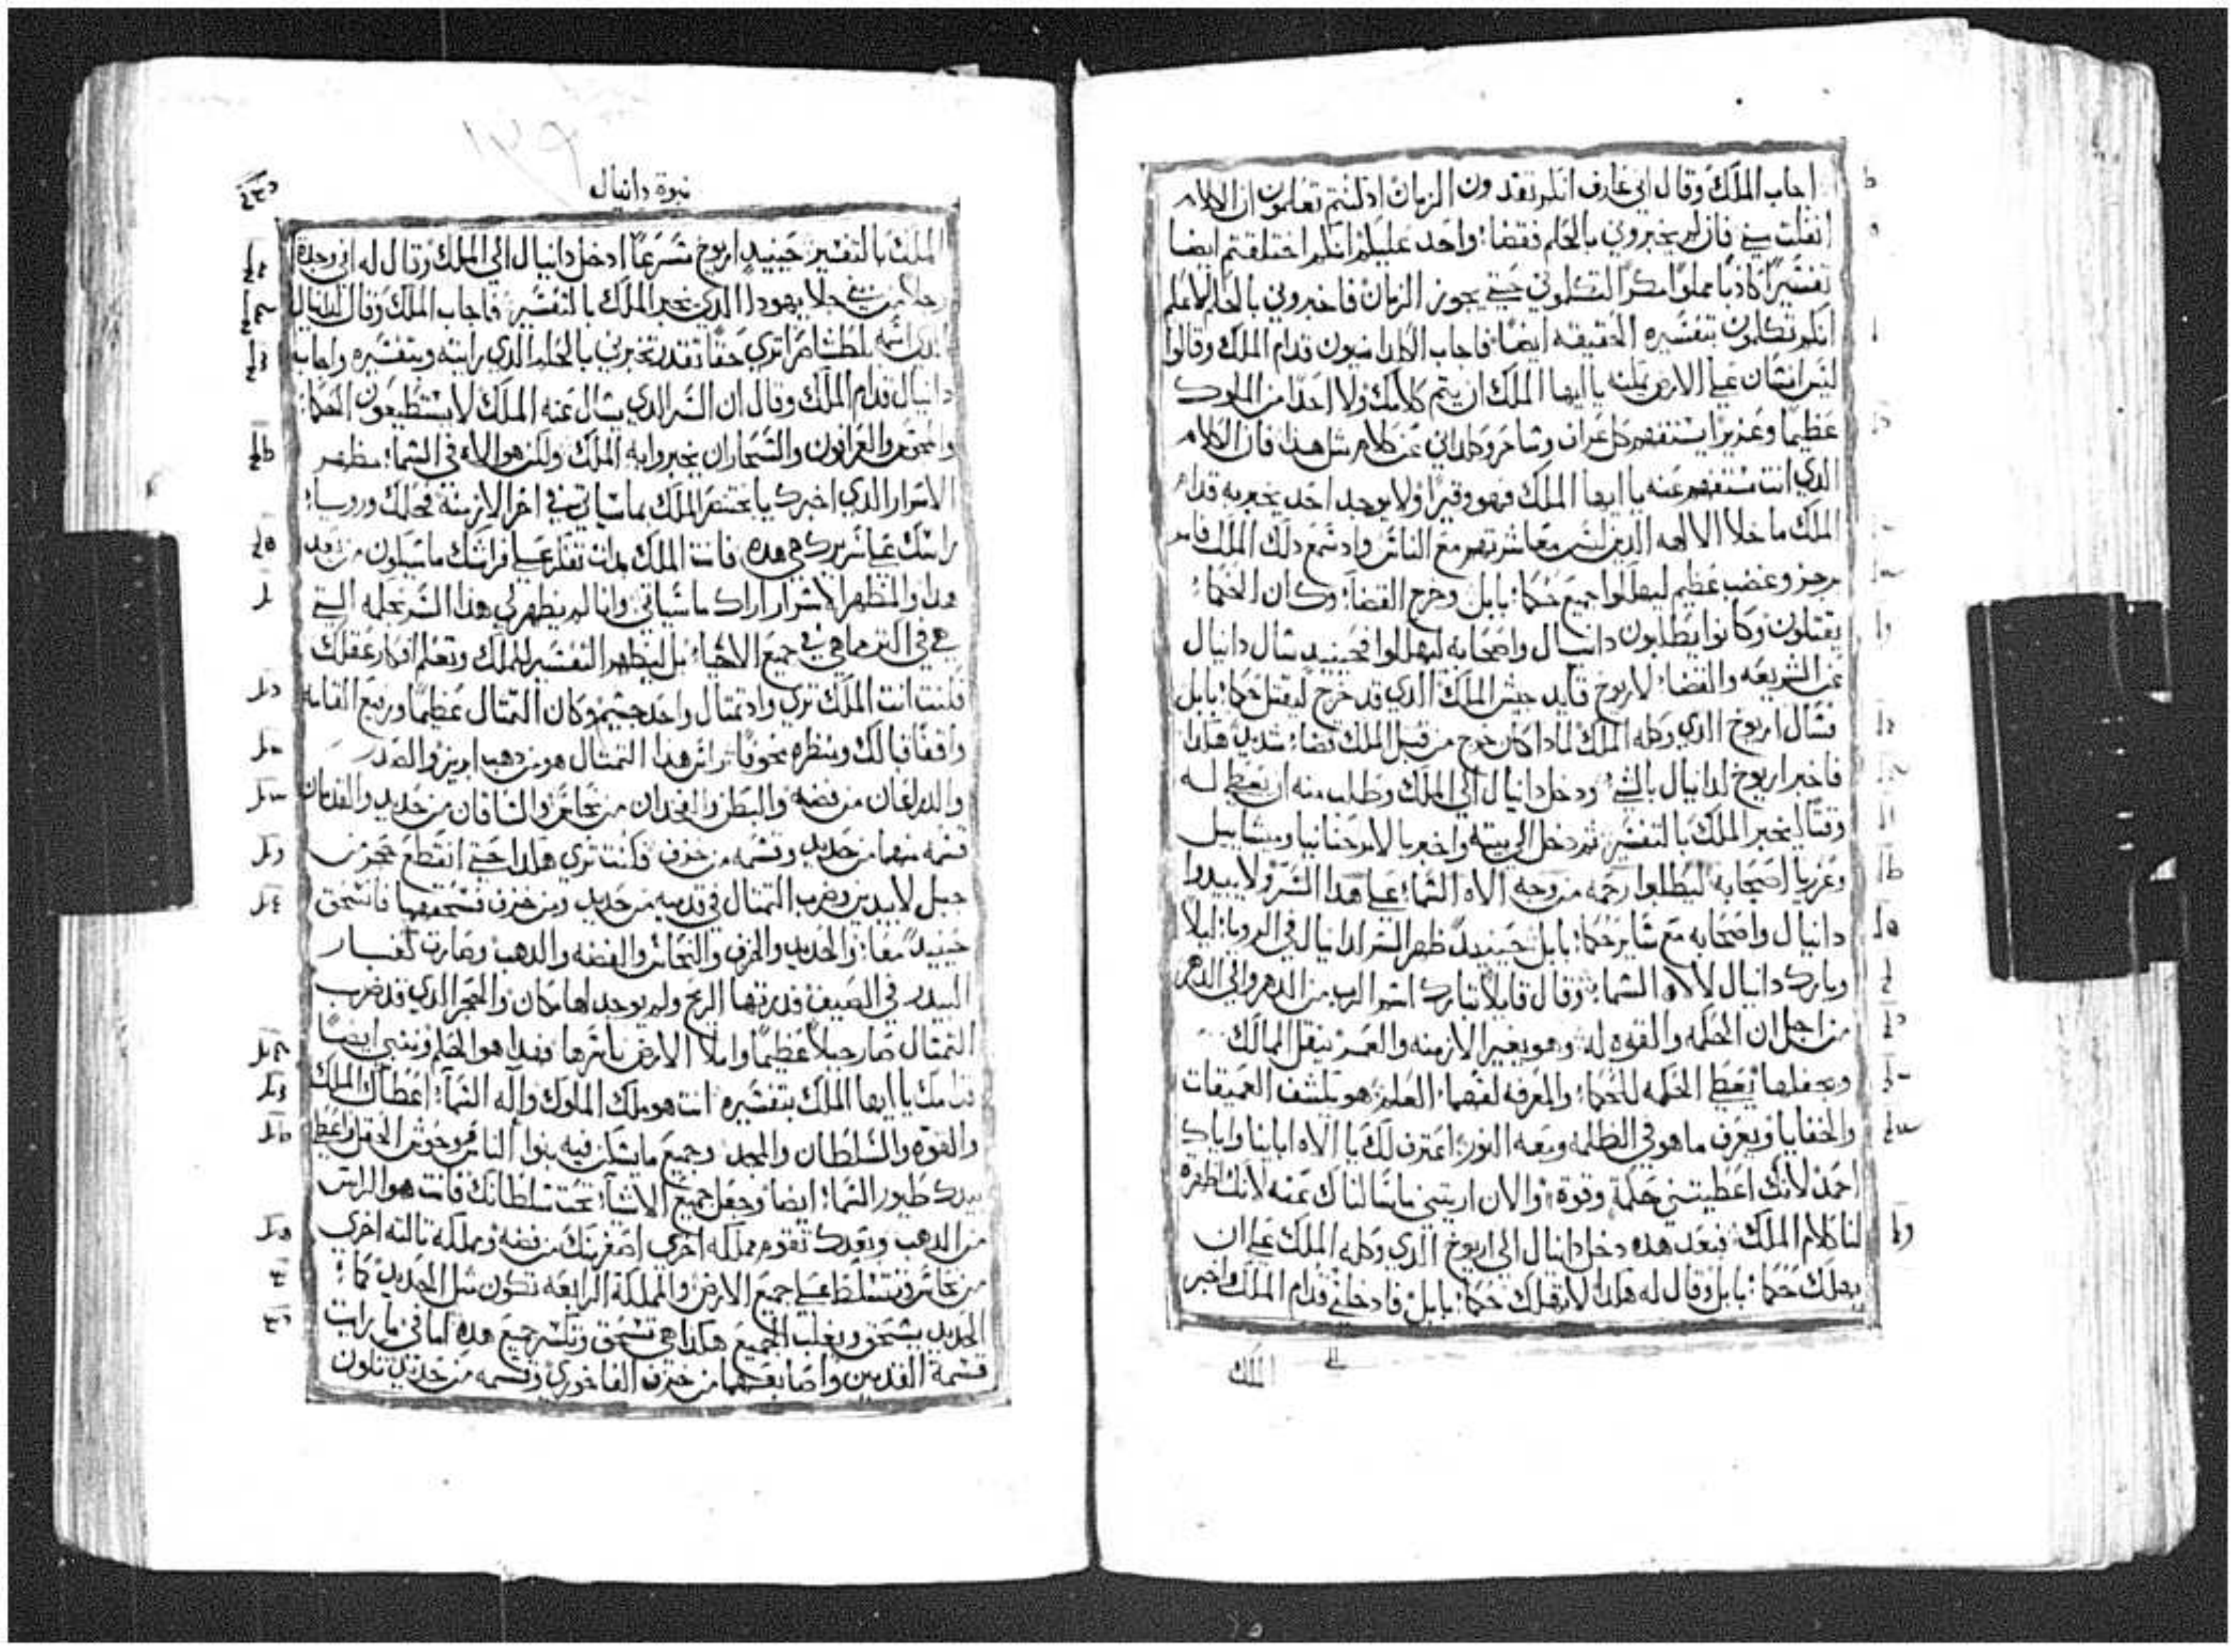 اجاب الملك وقال اني عارف انكم تفدون الزمان اد كنتم تعلمون ان الكلام
انفلت مني فان لم تخبروني بالحلم فقضاء واحد عليكم انكم اختلقتم ايضا
تفسيرا كادبا مملوا مكرا لتتكلموني حتي يجوز الزمان فاخبروني بالحلم لاعلم
انكم تتكلمون بتفسيره الحقيقه ايضا فاجاب الكلدانيون قدام الملك وقالوا
ليس انسان علي الارض يمكنه يا ايها الملك ان يتم كلامك ولا احدا من الملوك
عظيما وعزيزا يستفهم كل عراف وساحر وكلداني عن كلام مثل هذا فان الكلام
الدي انت تستفهم عنه يا ايها الملك فهو وقيرا ولا يوجد احد يخبر به قدام
الملك ما خلا الالهه الدين ليس معاشرتهم مع الناس واد سمع دلك الملك فامر
برجز وغضب عظيم ليهلكوا جميع حكماء بابل وخرج القضاء وكان الحكماء
يقتلون وكانوا يطلبون دانيال واصحابه ليهلكوا فحينيد سال دانيال
عن الشريعه والقضاء لاريوخ قايد جيش الملك الدي قد خرج ليقتل حكماء بابل
فسال اريوخ الدي وكله الملك لمادا كان خرج من قبل الملك قضاء شديد هكدا
فاخبر اريوخ لدانيال بالشي ودخل دانيال الي الملك وطلب منه ان يعطي له
وقتا ليخبر الملك بالتفسير ثم دخل الي بيته واخبر بالامر حنانيا وميشاييل
وعزريا اصحابه ليطلبوا رحمه من وجه الاه السماء علي هدا السر ولا يبيدوا
دانيال واصحابه مع ساير حكماء بابل حينيد ظهر السر لدانيال في الرويا ليلا
وبارك دانيال لالاه السماء وقال قايلا تبارك اسم الرب من الدهر والي الدهر
من اجل ان الحكمه والقوه له وهو يغير الازمنه والعمر ينقل الممالك
ويجعلها يعطي الحكمه للحكماء والمعرفه لفهماء العلم هو يكشف العميقات
والخفايا ويعرف ما هو في الظلمه ومعه النور اعترف لك يا الاه اباينا واياك
احمد لانك اعطيتني حكمة وقوة والان اريتني ما سالناك عنه لانك اظهرة
لنا كلام الملك فبعد هده دخل دانيال الي اريوخ الدي وكله الملك علي ان
يهلك حكماء بابل وقال له هكدا لا تهلك حكماء بابل فادخلني قدام الملك واخبر
الملك
نبوة دانيال
١٢٩
الملك بالتفسير حينيد اريوخ مسرعا ادخل دانيال الي الملك وقال له اني وجدة
رجلا من بني جلا يهودا الدي يخبر الملك بالتفسير فاجاب الملك وقال لدانيال
الدي اسمه بلطشاصر اتري حقا تقدر تخبرني بالحلم الدي رايته وبتفسيره واجاب
دانيال قدام الملك وقال ان السر الدي يسال عنه الملك لا يستطيعون الحكماء
والمجوس والعرافون والسحاران يخبروا به الملك ولكن هو الاه في السماء مظهر
الاسرار الدي اخبرك يا بختنصر الملك بما سياتي في اخر الازمنة فحلمك ورويا
راسك علي سريرك هي هده فانت الملك بدات تفكر علي فراشك ما سيكون من بعد
هدا والمظهر الاسرار اراك ما سياتي وانا لم يظهر لي هدا السر بحكمه التي
هي في اكثر مما هي في جميع الاحياء بل ليظهر التفسير للملك وتعلم افكار عقلك
فكنت انت الملك تري واد تمثال واحد جسيم وكان التمثال عظيما ورفيع القامه
واقفا قبالك ومنظره مخوفا راس هدا التمثال هو من دهب ابريز والصدر
والدراعان من فضه والبطن والفخدان من نحاس والساقان من حديد والقدمان
قسمه منهما من حديد وقسمه من خزف فكنت تري هكدا حتي انقطع حجر من
جبل لا بيدين وضرب التمثال في قدميه من حديد ومن خزف فسحقهما فانسحق
حينيد معا والحديد والخزف والنحاس والفضه والدهب وصارت كغبار
البيدر في الصيف فدرتها الريح ولم يوجد لها مكان والحجر الدي قد ضرب
التمثال صار جبلا عظيما واملا الارض باسرها فهدا هو الحلم وننبي ايضا
قدامك يا ايها الملك بتفسيره انت هو ملك الملوك واله السماء اعطاك الملك
والقوه والسلطان والمجد وجميع ما يسكن فيه بنوا الناس ووحوش الحقل واعطي
بيدك طيور السماء ايضا وجعل جميع الاشياء تحت سلطانك فانت هو الراس
من الدهب وبعدك تقوم مملكه اخري اصغر منك من فضه ومملكه تالته اخري
من نحاس وتتسلط علي جميع الارض والمملكة الرابعه تكون مثل الحديد كما
الحديد يسحق ويغلب الجميع هكدا هي تسحق وتكسر جميع هده اما في ما رايت
قسمة القدمين واصابعهما من خزف الفاخوري وقسمه من حديد تكون